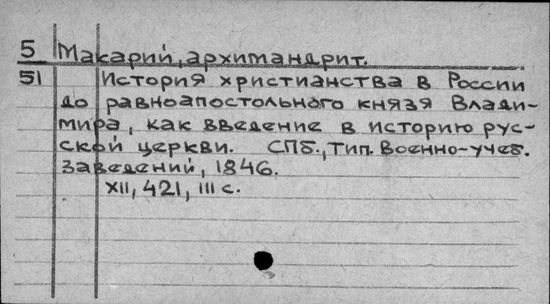 5 Макарий, архимандрит.
51 История христианства в России
до равноапостольного князя Влади-
мира, как введение в историю рус-
ской церкви. СПб., тип. Военно-учеб.
заведений, 1846.
XII, 421, III с.